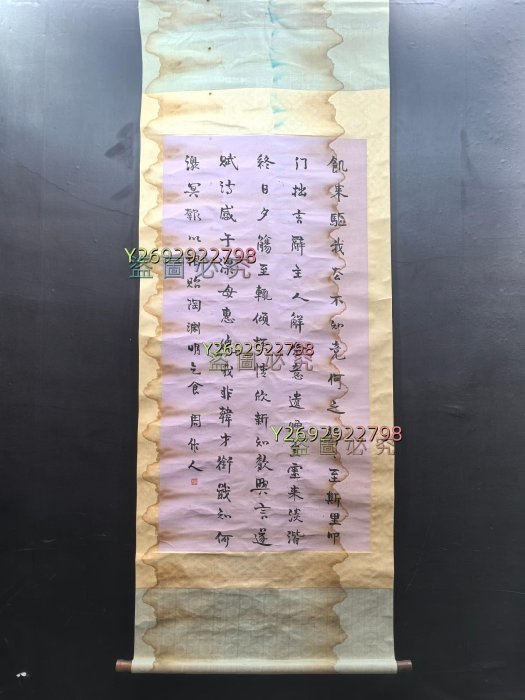 飢来驅我去不知竟何之至斯里叩
门拙言辭主人解意遺虛来談諧
終日夕觴至輒傾杯情欣新知歡興言遂
賦诗感子母惠我非韓才銜戢知何
謝冥報以貽陶渊明乞食 周作人
Y2692922798
盗圖必究
Y2692922798
盗圖必究
Y2692922798
盗圖必究